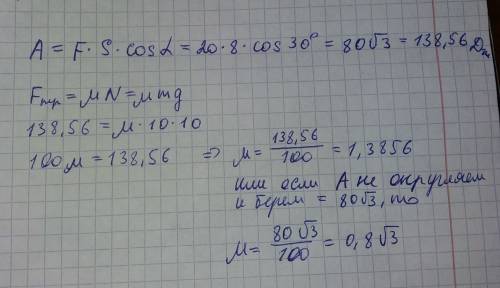 A = F · S · cos L = 20 · 8 · cos 30° = 80√3 = 138,56 Дж
Fтр = μN = μmg
138,56 = μ · 10 · 10
100μ = 138,56 => μ = 138,56/100 = 1,3856
или если А не округляем
и берем = 80√3, то
μ = 80√3/100 = 0,8√3